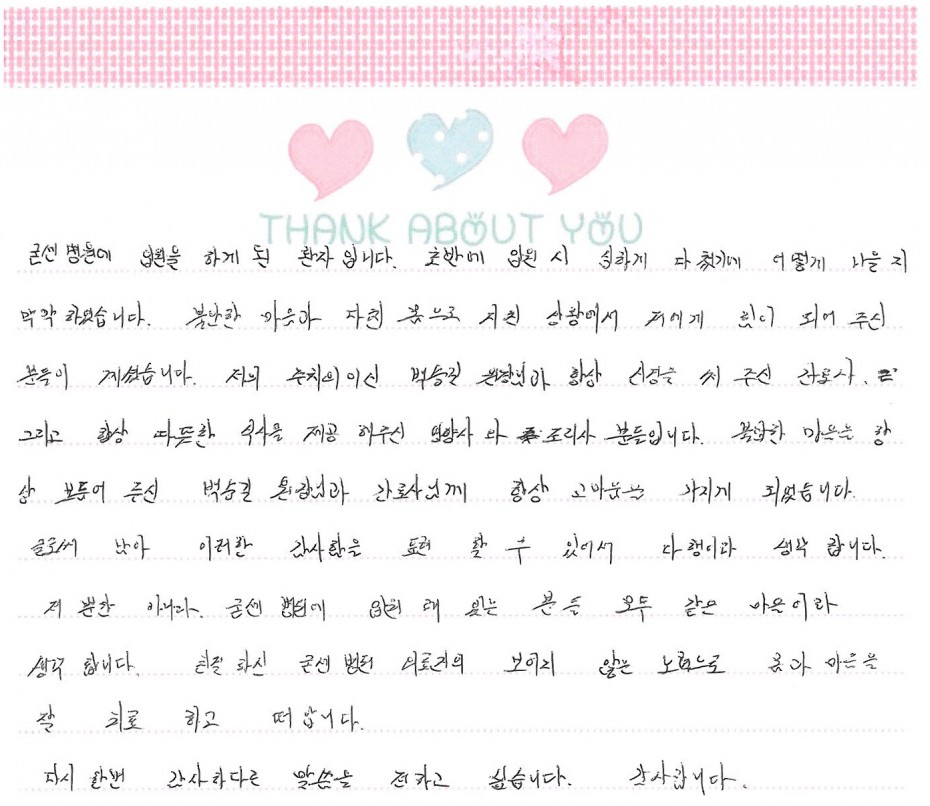 THANK ABOUT YOU
굳센 병원에 입원을 하게 된 환자 입니다. 초반에 입원 시 심하게 다쳤기에 어떻게 나을 지
막막 하였습니다. 불안한 마음과 다친 몸으로 지친 상황에서 저에게 힘이 되어 주신
분들이 계셨습니다. 저의 주치의이신 박승길 원장님과 항상 신경을 써 주신 간호사,
그리고 항상 따뜻한 식사를 제공 하주신 영양사 와 조리사 분들입니다. 복잡한 마음을 항
상 보듬어 주신 박승길 원장님과 간호사님께 항상 고마움을 가지게 되었습니다.
글로써 남아 이러한 감사함을 표현 할 수 있어서 다행이라 생각 합니다.
저 뿐만 아니라. 굳센 병원에 입원 해 있는 분들 모두 같은 마음이라
생각 합니다. 친절 하신 굳센 병원 의료진의 보이지 않은 노력으로 몸과 마음을
잘 치료 하고 떠납니다.
다시 한번 감사하다른 말씀을 전하고 싶습니다. 감사합니다.